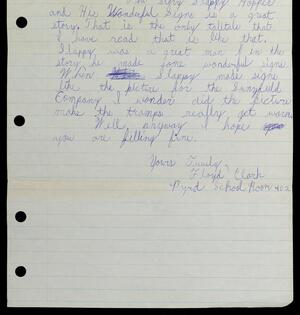 Slappy Hopper
and His Wonderful Signs is a great
story. That is the only talltale that
I have read that is like that.
Slappy was a great man & in the
story he made some wonderful signs
When Slappy made signs
like the picture for the Sunshield
Company I wonder did the picture
make the tramps really get warm
Well, anyway I hope
you are filling fine.
Yours Truely,
Floyd Clark
Byrd School Room 402